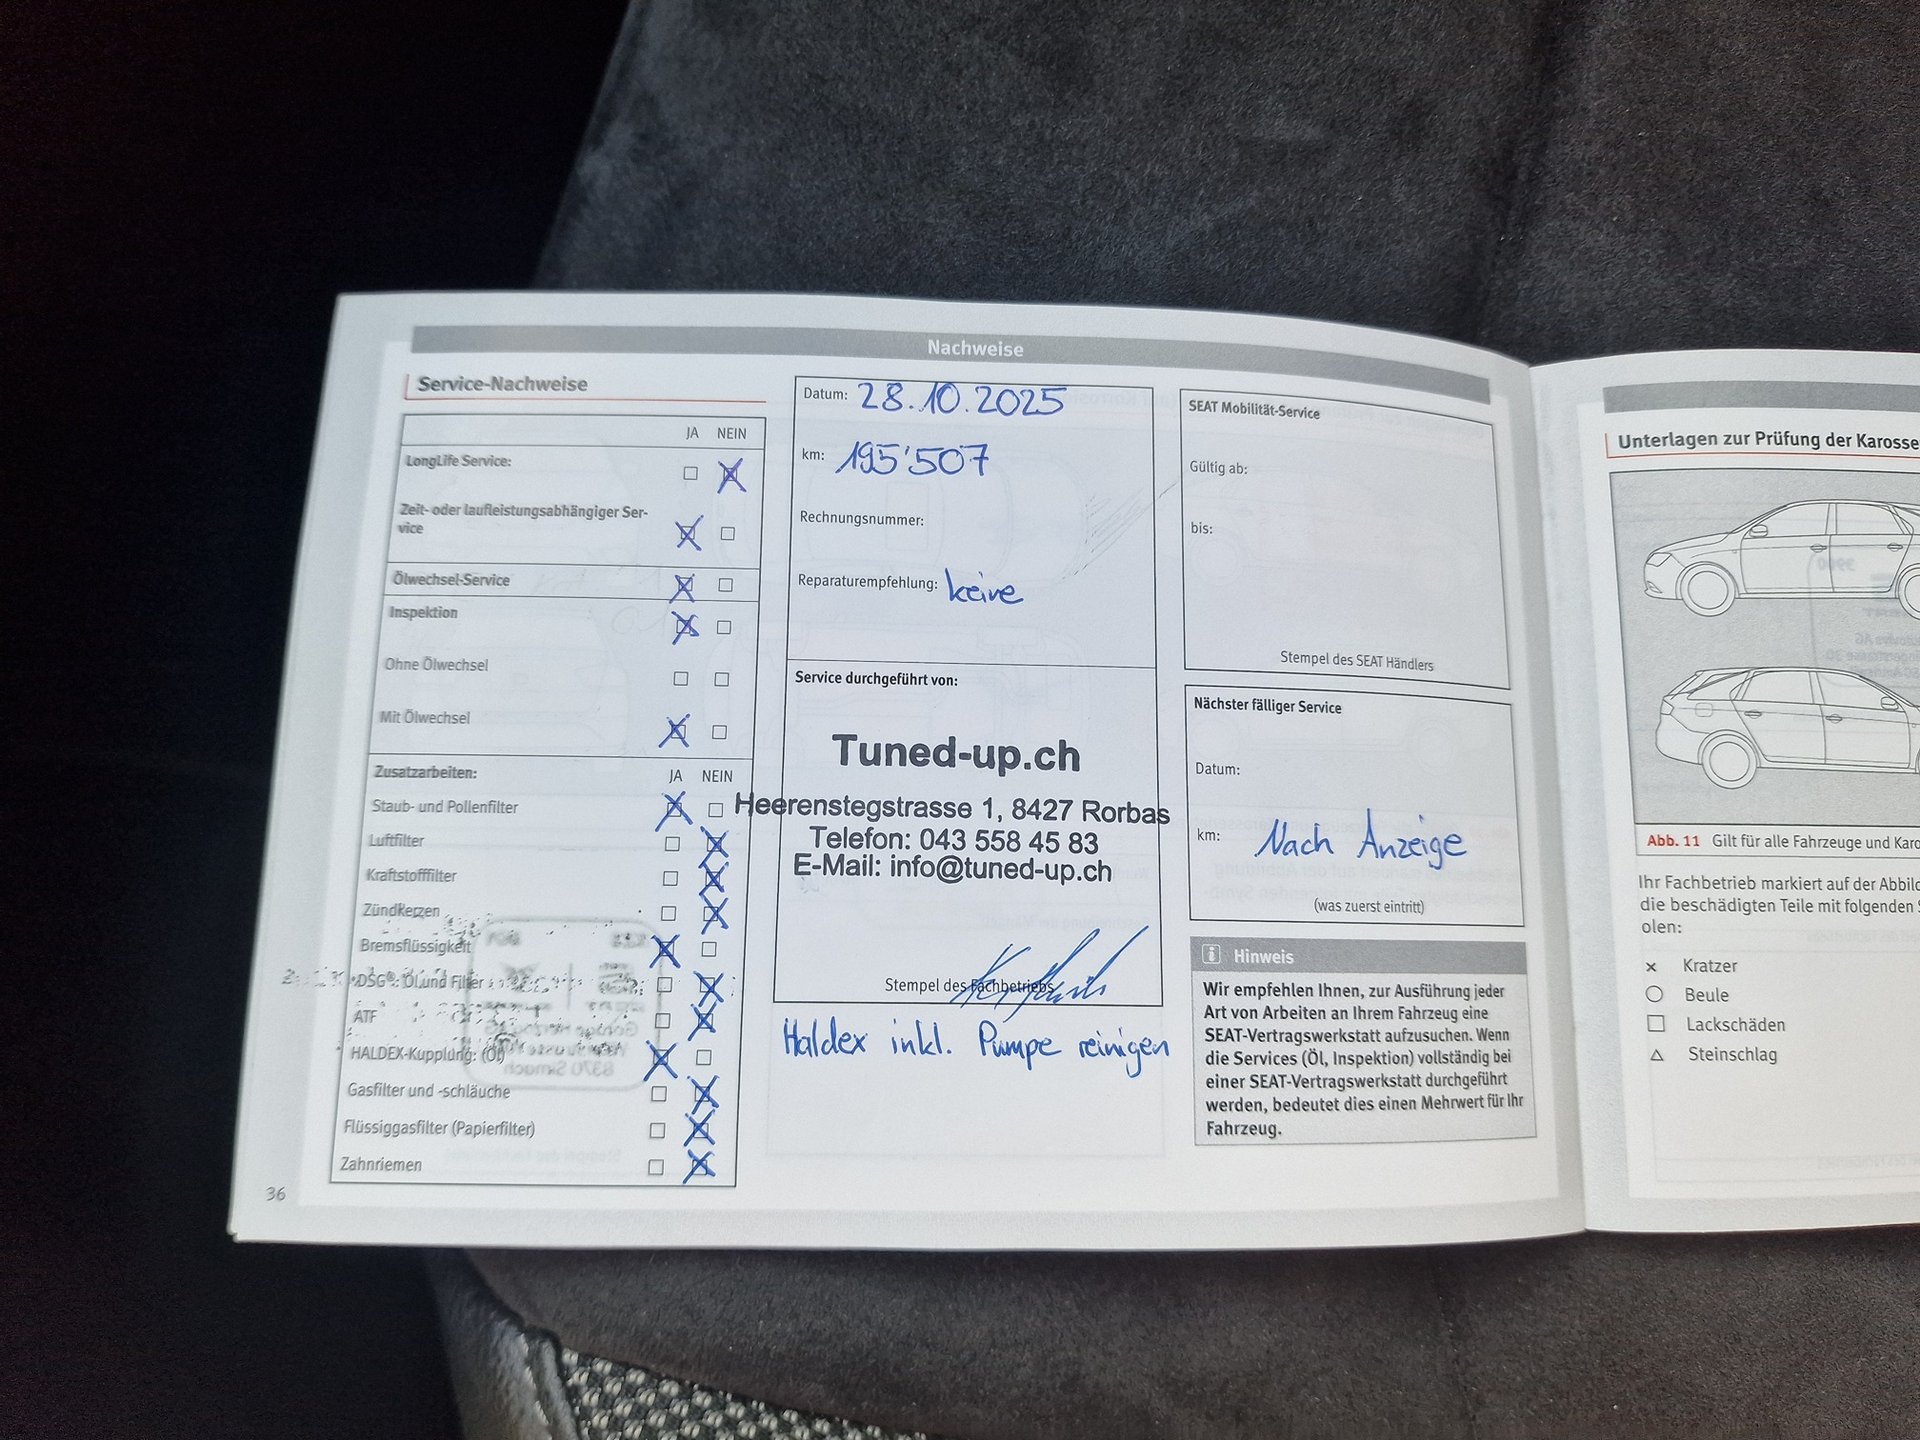 Nachweise
Service-Nachweise
JA NEIN
LongLife Service:
Zeit- oder laufleistungsabhängiger Ser-
vice
Ölwechsel-Service
Inspektion
Ohne Ölwechsel
Mit Ölwechsel
Zusatzarbeiten: JA NEIN
Staub- und Pollenfilter
Luftfilter
Kraftstofffilter
Zündkerzen
Bremsflüssigkeit
DSG®: Öl und Filter
ATF
HALDEX-Kupplung: (Öl)
Gasfilter und -schläuche
Flüssiggasfilter (Papierfilter)
Zahnriemen
36
Datum: 28.10.2025
km: 195'507
Rechnungsnummer:
Reparaturempfehlung: keine
Service durchgeführt von:
Tuned-up.ch
Heerenstegstrasse 1, 8427 Rorbas
Telefon: 043 558 45 83
E-Mail: info@tuned-up.ch
Stempel des Fachbetriebs
Haldex inkl. Pumpe reinigen
SEAT Mobilität-Service
Gültig ab:
bis:
Stempel des SEAT Händlers
Nächster fälliger Service
Datum:
km: Nach Anzeige
(was zuerst eintritt)
Hinweis
Wir empfehlen Ihnen, zur Ausführung jeder
Art von Arbeiten an Ihrem Fahrzeug eine
SEAT-Vertragswerkstatt aufzusuchen. Wenn
die Services (Öl, Inspektion) vollständig bei
einer SEAT-Vertragswerkstatt durchgeführt
werden, bedeutet dies einen Mehrwert für Ihr
Fahrzeug.
Unterlagen zur Prüfung der Karosse
Abb. 11 Gilt für alle Fahrzeuge und Karo
Ihr Fachbetrieb markiert auf der Abbild
die beschädigten Teile mit folgenden S
olen:
x Kratzer
○ Beule
□ Lackschäden
△ Steinschlag